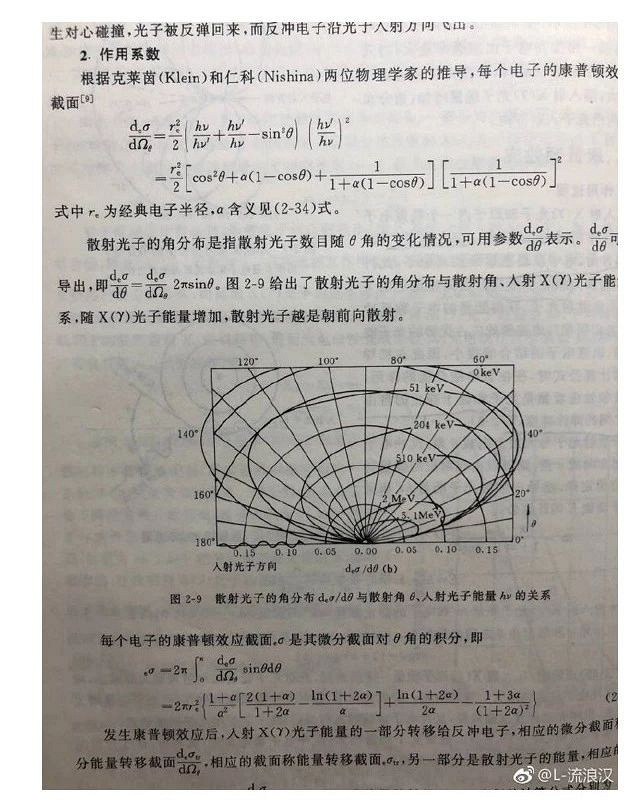 生对心碰撞,光子被反弹回来,而反冲电子沿光子入射方向飞出。
2. 作用系数
根据克莱茵(Klein)和仁科(Nishina)两位物理学家的推导,每个电子的康普顿效
截面[9]
d_eσ/dΩ_θ = r_e²/2 (hν/hν′ + hν′/hν − sin²θ) (hν′/hν)²
= r_e²/2 [cos²θ + α(1−cosθ) + 1/(1+α(1−cosθ))] [1/(1+α(1−cosθ))]²
式中 r_e 为经典电子半径,α 含义见(2-34)式。
散射光子的角分布是指散射光子数目随 θ 角的变化情况,可用参数 d_eσ/dθ 表示。d_eσ/dθ 可
导出,即 d_eσ/dθ = d_eσ/dΩ_θ 2πsinθ。图 2-9 给出了散射光子的角分布与散射角、入射 X(γ)光子能
系,随 X(γ)光子能量增加,散射光子越是朝前向散射。
120° 100° 80° 60°
0 keV
51 keV
204 keV
140° 40°
510 keV
160° 20°
2 MeV
5.1MeV
θ
180° 0°
0.15 0.10 0.05 0.00 0.05 0.10 0.15
入射光子方向 d_eσ/dθ (b)
图 2-9 散射光子的角分布 d_eσ/dθ 与散射角 θ、入射光子能量 hν 的关系
每个电子的康普顿效应截面 _eσ 是其微分截面对 θ 角的积分,即
_eσ = 2π ∫₀^π d_eσ/dΩ_θ sinθdθ
= 2πr_e² {1+α/α² [2(1+α)/1+2α − ln(1+2α)/α] + ln(1+2α)/2α − 1+3α/(1+2α)²} (2
发生康普顿效应后,入射 X(γ)光子能量的一部分转移给反冲电子,相应的微分截面
分能量转移截面 d_eσ_tr/dΩ_θ,相应的截面称能量转移截面 _eσ_tr,另一部分是散射光子的能量,相应的
@L-流浪汉